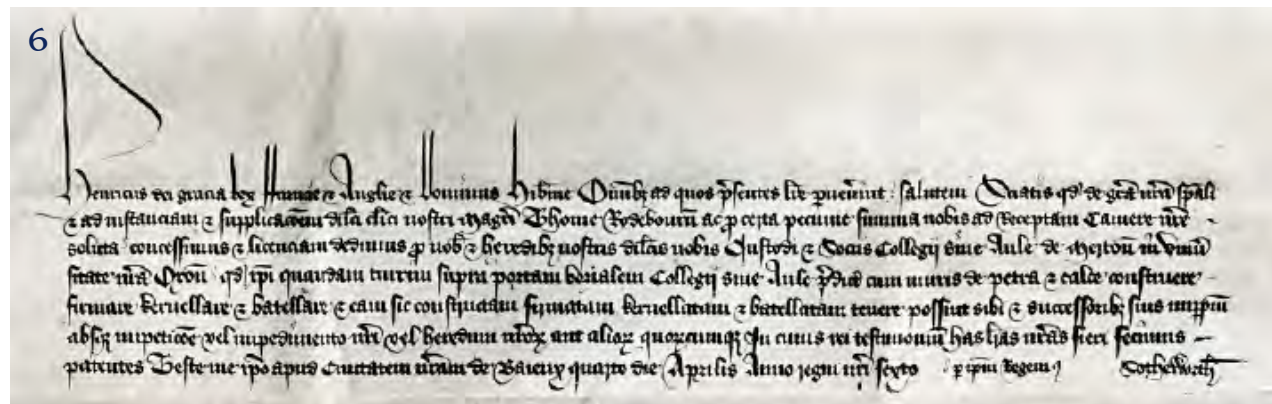 6
Henricus dei gracia Rex Francie & Anglie & Dominus Hibnie Omībȝ ad quos p̄sentes lre puen̄int salutem Sciatis qd de grā nrā sp̄ali
& ad instanciam & supplicac̄oem dilc̄i clici nostri Magr̄i Thome Rodebourn̄ ac p certa pecunie summa nobis ad Receptam Camere nrē
soluta concessimus & licenciam dedimus p nob & heredibȝ nostris dilc̄is nobis Custodi & Sociis Collegij siue Aule de Merton̄ in vniu
sitate nrā Oxon̄ qd ip̄i quandam turrim supra portam borialem Collegij siue Aule p̄dic̄e cum muris de petra & calce construere
firmare kernellare & batellare & eam sic constructam firmatam kernellatam & batellatam tenere possint sibi & successoribȝ suis imppm̄
absqȝ impetic̄oe vel impedimento nrī vel heredum nrōꝝ aut alioꝝ quoꝝcumqȝ In cuius rei testimoniū has lrās nrās fieri fecimus
patentes Teste me ip̄o apud Ciuitatem nrām de Baieux quarto die Aprilis Anno regni nrī sexto p ipm̄ Regem Sotheworth